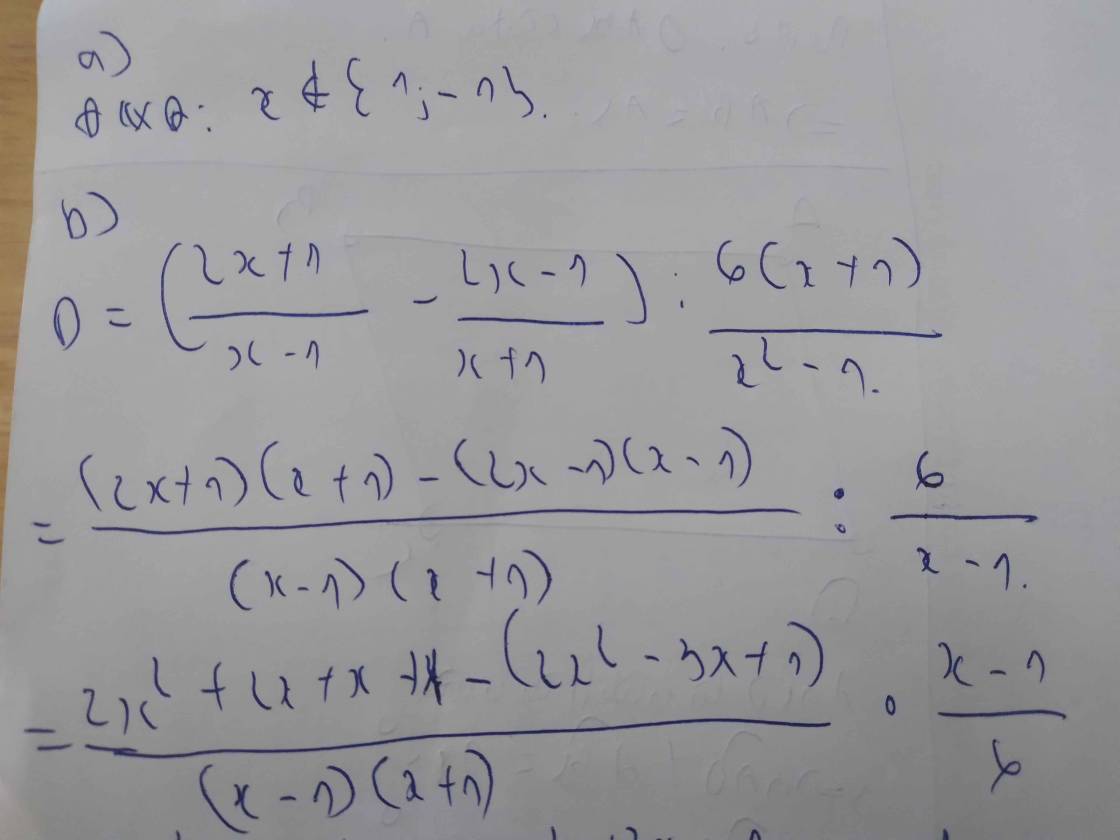 a)
ĐKXĐ: x ∉ {1; -1}.
b)
D = ((2x+1)/(x-1) - (2x-1)/(x+1)) : (6(x+1))/(x²-1).
= ((2x+1)(x+1) - (2x-1)(x-1))/((x-1)(x+1)) : 6/(x-1).
= (2x² + 2x + x + 1 - (2x² - 3x + 1))/((x-1)(x+1)) · (x-1)/6